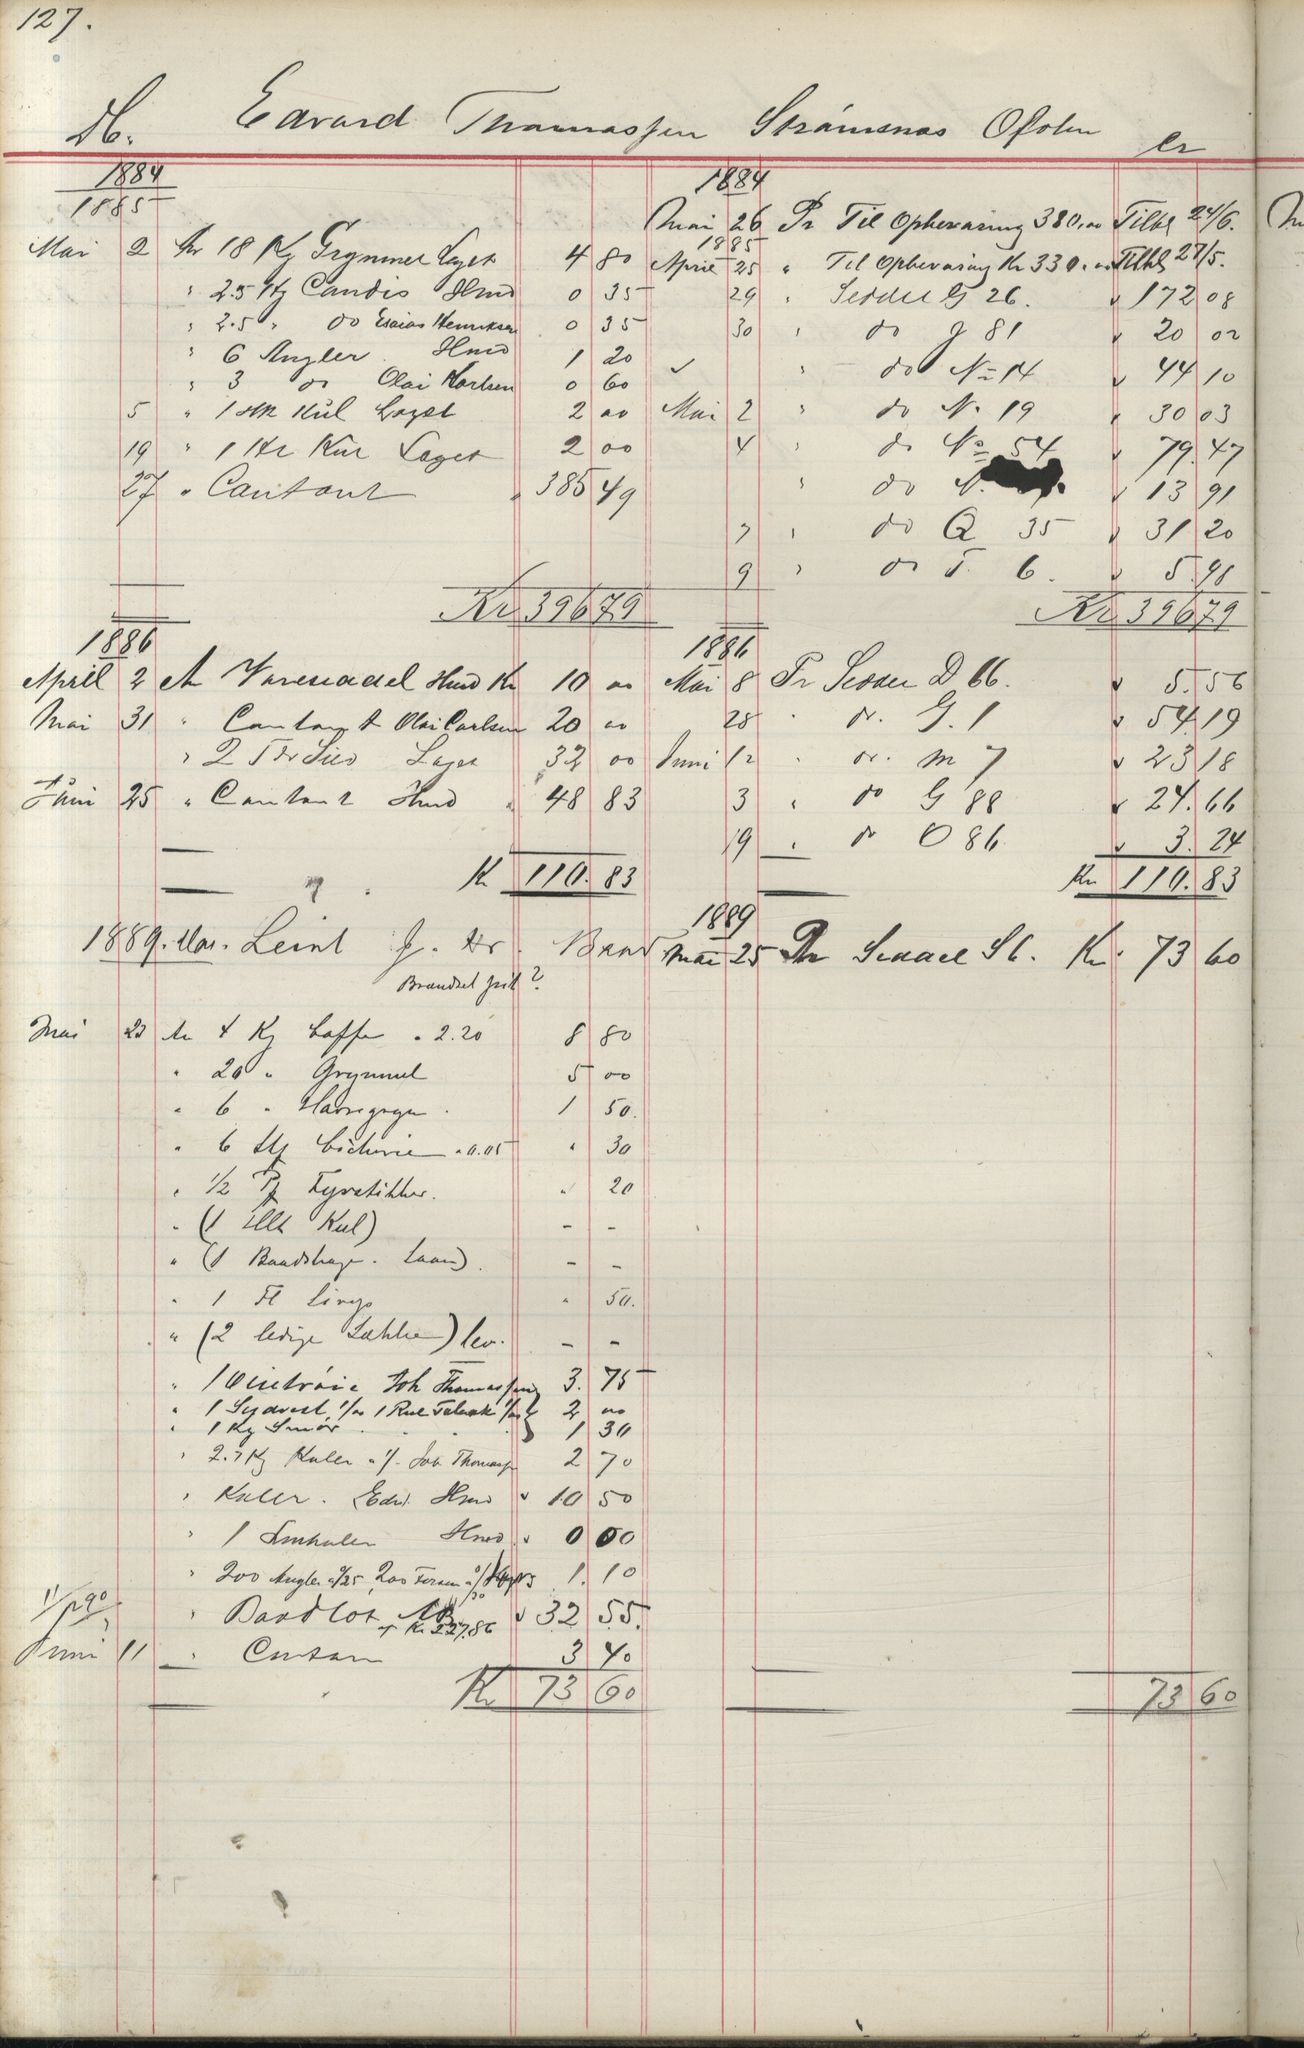 127.
Db. Edvard Thomassen Strömsnæs Ofoten Cr
1884
1885
Mai 2 An 18 Kg Grynmel Laget 4 80
" 2.5 Kg Candis Hmd 0 35
" 2.5 " do Esaias Henriksen 0 35
" 6 Angler Hmd 1 20
" 3 do Olai Karlsen 0 60
5 " 1 Hk Kul Laget 2 00
19 " 1 Hk Kul Laget 2 00
27 " Contant " 385 49
Kr 396 79
1884
Mai 26 Pr Til Opbevaring 380,00 Tilbg 24/6.
1885
April 25 " Til Opbevaring Kr 330.00 Tilbg 27/5.
29 " Seddel G 26. " 172 08
30 " do J 81 " 20 02
" do No 14 " 44 10
Mai 2 " do N. 19 " 30 03
4 " do No 54 " 79.47
" do N. " 13 91
7 " do Q 35 " 31 20
9 " do T. 6. " 5.98
Kr 396 79
1886
April 2 An Vareseddel Hmd Kr 10 00
Mai 31 " Contant Olai Carlsen 20 00
" 2 Tdr Sild Laget 32 00
Juni 25 " Contant Hmd " 48 83
Kr 110.83
1886
Mai 8 Pr Seddel D 66. " 5.56
28 " do. G. 1 " 54.19
Juni 12 " do. M 7 " 23 18
3 " do G 88 " 24.66
19 " do O 86 " 3.24
Kr 110.83
1889. Mai. Leint
Brændsel
1889
Mai 25 Pr Seddel S 6. Kr. 73 60
Mai 23 An 4 Kg Caffe " 2.20 8 80
" 20 " Grynmel 5 00
" 6 " Havregryn. 1 50.
" 6 Stk Cichorie " 0.05 " 30
" 1/2 Pk Fyrstikker. " 20
" (1 Kul) - -
" (1 Baadshage. Laan). - -
" 1 Fl Sirup " 50.
" (2 ledige Sække) lev. - -
" 1 Joh Thomassen 3. 75
" 1 Sydvest 1/00 1 Rul Tobak 2 00
" 1 Kg Smör 1 30
" 2.7 Kg Kuler " 1/- Joh. Thomass 2 70
" Kuler. Edv. Hmd " 10 50
" 1 Hmd " 0 00
" 200 Angler 1. 10
" Baadlot " 32 55.
af Kr 227.86
Juni 11 " Contant 3 40
Kr 73 60
73 60